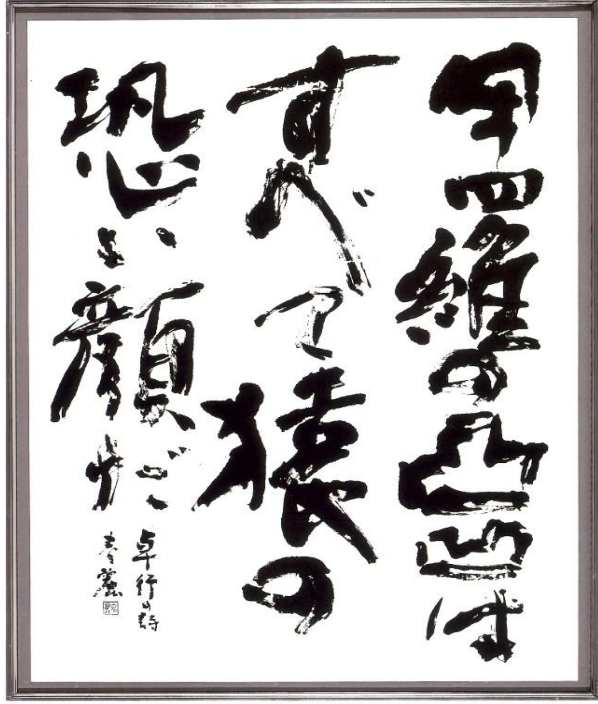 甲羅の凸凹は
すべて猿の
恐い顔だ
卓行の詩